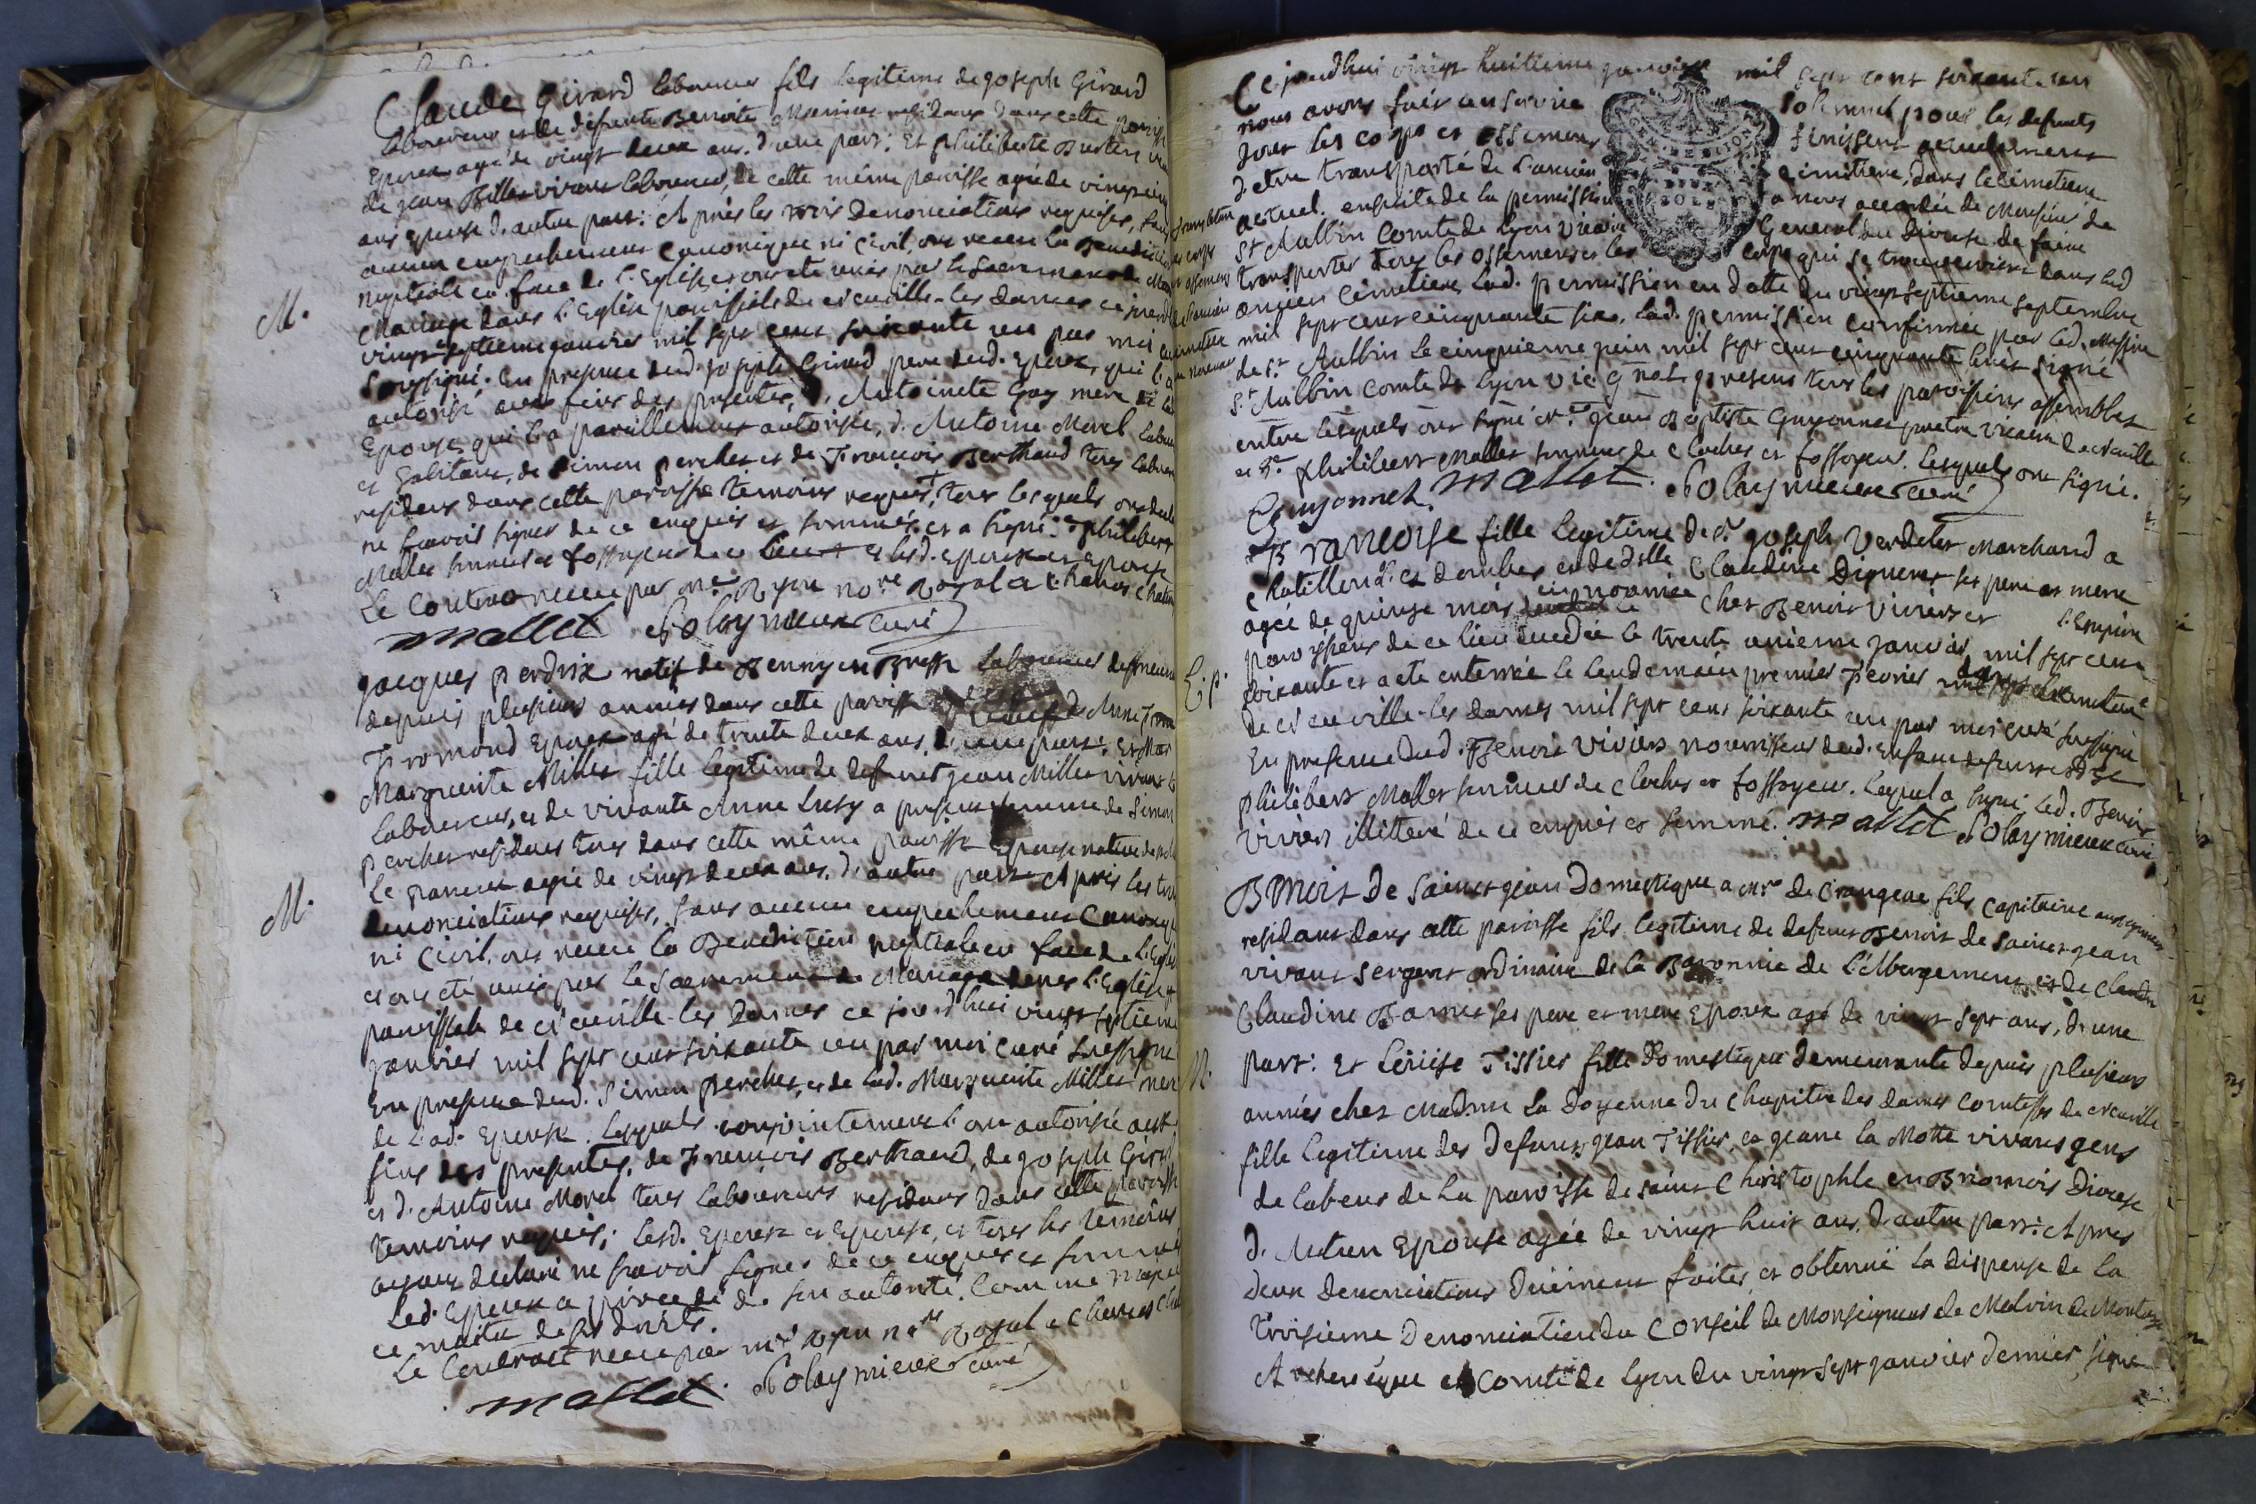 Claude Girard laboureur fils legitime de Joseph Girard
laboureur et de défunte Benoite Monnier residans dans cette paroisse
Epoux agé de vingt deux ans. d'une part: Et philiberte
de Jean Billet vivant laboureur, de cette même paroisse agée de vingt
ans Epouse d. autre part: Après les trois denonciations requises, sans
aucun empechement Canonique ni Civil, ont receu la Benediction
nuptiale en face de l'Eglise et ont eté unis par le Sacrement de
M.
Mariage dans l'Eglise paroissiale de neuville-les dames ce jourd
vingt septieme janvier mil sept cent soixante un par moi curé
soussigné. En presence dud. joseph Girard pere dud. Epoux, qui l'a
autorisé aux fins des presentes, d. Antoinete Gay mere de lad
Epouse qui l'a pareillement autorisée, d. Antoine Morel
et Galitaux, de Simon perchet et de François Berthaud tous
residens dans cette paroisse temoins requis, tous lesquels ont
ne scavoir signer de ce enquis et sommés, et a signé philibert
Mallet sonneur et fossoyeur de ce lieu et lesd. Epoux et Epouse
Le Contrat receu par me Ryon nore Royal a
mallet Polaymieux curé
jacques perdrix natif de Bennyen Bresse laboureur demeurant
depuis plusieurs années dans cette paroisse Anne
Fromond Epoux agé de trente deux ans, d'une part; Et
Marguerite Millet fille legitime de defunt jean Millet vivant
laboureur, et de vivante Anne Lusy a present femme de Simon
perchet residens tous dans cette même paroisse Epouse native
agée de vingt deux ans, d'autre part. Après les trois
M.
denonciations requises, sans aucun empechement Canonique
ni Civil, ont receu la Benediction nuptiale en face de l'Eglise
et ont eté unis par le Sacrement de Mariage dans l'Eglise
paroissiale de neuville-les dames ce jourd'hui vingt septieme
janvier mil sept cent soixante un par moi curé soussigné
En presence dud. Simon perchet, et de lad. Marguerite Millet mere
de lad. Epouse. lesquels conjointement l'ont autorisée aux
fins des presentes, de François Berthaud, de joseph Girard
et d. Antoine Morel tous laboureurs residans dans cette paroisse
temoins requis; lesd. Epoux et Epouse, et tous les temoins
ayant declaré ne scavoir signer de ce enquis et sommés
led. Epoux a procedé de son autorité. comme majeur
et maitre de ses droits.
Le Contract receu par me Ryon nore Royal a
mallet. Polaymieux curé
Ce jourdhui vingt huitieme janvier mil sept cent soixante un
nous avons fait un service solennel pour les defunts
dont les corps et ossemens finissent actuellement
d'etre transporté de l'ancien cimetiere, dans le cimetiere
actuel. ensuite de la permission a nous accordée de Monsieur de
St Aulbin Comte de Lyon Vicaire General du Diocese de faire
transporter tous les ossemens et les corps qui se trouveroient dans led
ancien Cimetiere, lad. permission en datte du vingt septieme septembre
mil sept cent cinquante six, lad. permission confirmée par led. Messire
de St Aulbin le cinquieme juin mil sept cent cinquante huit signé
St Aulbin Comte de Lyon vic. gnal. presens tous les paroissiens assemblés
entre lesquels ont signé Mre jean Baptiste Guyonnet pretre vicaire de neuville
et Sr philibert Mallet sonneur de cloches et fossoyeur. lesquels ont signé.
Guyonnet. Mallet. Polaymieux curé
Francoise fille legitime de Sr joseph Verdelet Marchand a
chatillon les dombes et de dlle Claudine Diguerer ses pere et mere
agée de quinze mois en nourrice chez Benoit Viviers et
paroissiens de ce lieu decedée le trente unieme janvier mil sept cent
Ep.
soixante et a eté enterrée le lendemain premier Fevrier
de neuville-les dames mil sept cens soixante un par moi curé soussigné
En presence dud. Benoit Viviers nourrisseur dud. Enfant
philibert Mallet sonneur de cloches et fossoyeur. lequel a signé, led. Benoit
Viviers illitteré de ce enquis et sommé. mallet Polaymieux curé
Benoit de Saint jean Domestique a mr de Crangeac fils capitaine
residant dans cette paroisse fils legitime de defunt Benoit de Saint jean
vivant sergent ordinaire de la Baronnie de l'Abergement et de
Claudine Barnet ses pere et mere Epoux agé de vingt sept ans, d'une
M.
part: Et Louise Tissier fille Domestique demeurante depuis plusieurs
années chez Madme la Doyenne du Chapitre des dames comtesses de neuville
fille legitime des Defunts jean Tissier, et jeane la Motte vivans gens
de labeur de la paroisse de saint Christophle en Brionnois Diocese
d. Autun Epouse agée de vingt huit ans, d'autre part. Apres
deux denonciations duëment faites, et obtenuë la dispense de la
troisieme Denonciation du Conseil de Monseigneur de Malvin de Montazet
Archeveque et Comte de Lyon du vingt sept janvier dernier, signé